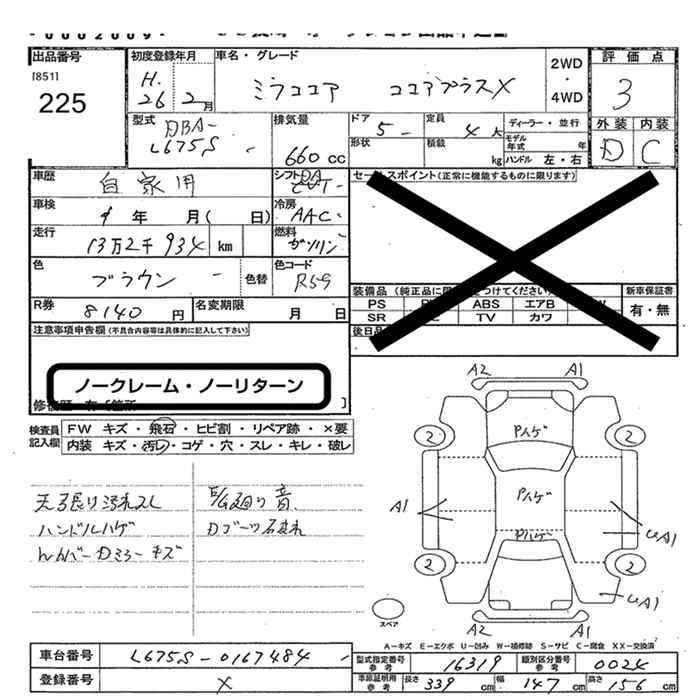 出品番号
[851]
225
初度登録年月
H.
26 2月
車名・グレード
ミラココア ココアプラスX
2WD
・
4WD
評価点
3
外装 内装
D C
型式
DBA-
L675S
排気量
660cc
ドア
5
定員
4
ディーラー・並行
形状
積載
kg
モデル年式
年
ハンドル 左・右
車歴
自家用
シフト
車検
年 月( 日)
冷房
AAC
走行
13万2千934 km
燃料
ガソリン
色
ブラウン
色替
色コード
R59
R券
8140円
名変期限
月 日
セールスポイント(正常に機能するものに限ります)
装備品
PS
ABS
エアB
SR
TV
カワ
新車保証書
有・無
注意事項申告欄(不具合内容等は具体的に記入して下さい)
ノークレーム・ノーリターン
検査員
記入欄
FW キズ・飛石・ヒビ割・リペア跡・×要
内装 キズ・汚れ・コゲ・穴・スレ・キレ・破レ
天張り汚れスレ
ハンドルハゲ
キズ
廻り音
Dブーツ破れ
A2 A1
2 2
Pハゲ
A1
Pハゲ
Pハゲ
UA1
2 2
UA1
スペア
A2 A1
A-キズ E-エクボ U-凹み W-補修跡 S-サビ C-腐食 XX-交換済
車台番号
L675S-0167484
登録番号
X
型式指定番号
参考
16319
類別区分番号
参考
0024
車庫証明用
参考
長さ 339 cm
幅 147 cm
高さ 156 cm